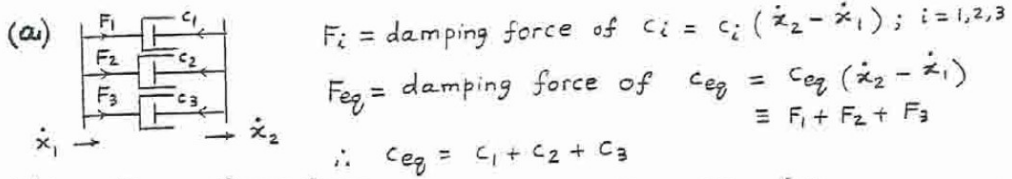 (a)
F₁ c₁
F₂ c₂
F₃ c₃
ẋ₁ ẋ₂
Fᵢ = damping force of cᵢ = cᵢ (ẋ₂ - ẋ₁) ; i = 1,2,3
F_eq = damping force of c_eq = c_eq (ẋ₂ - ẋ₁)
≡ F₁ + F₂ + F₃
∴ c_eq = c₁ + c₂ + c₃